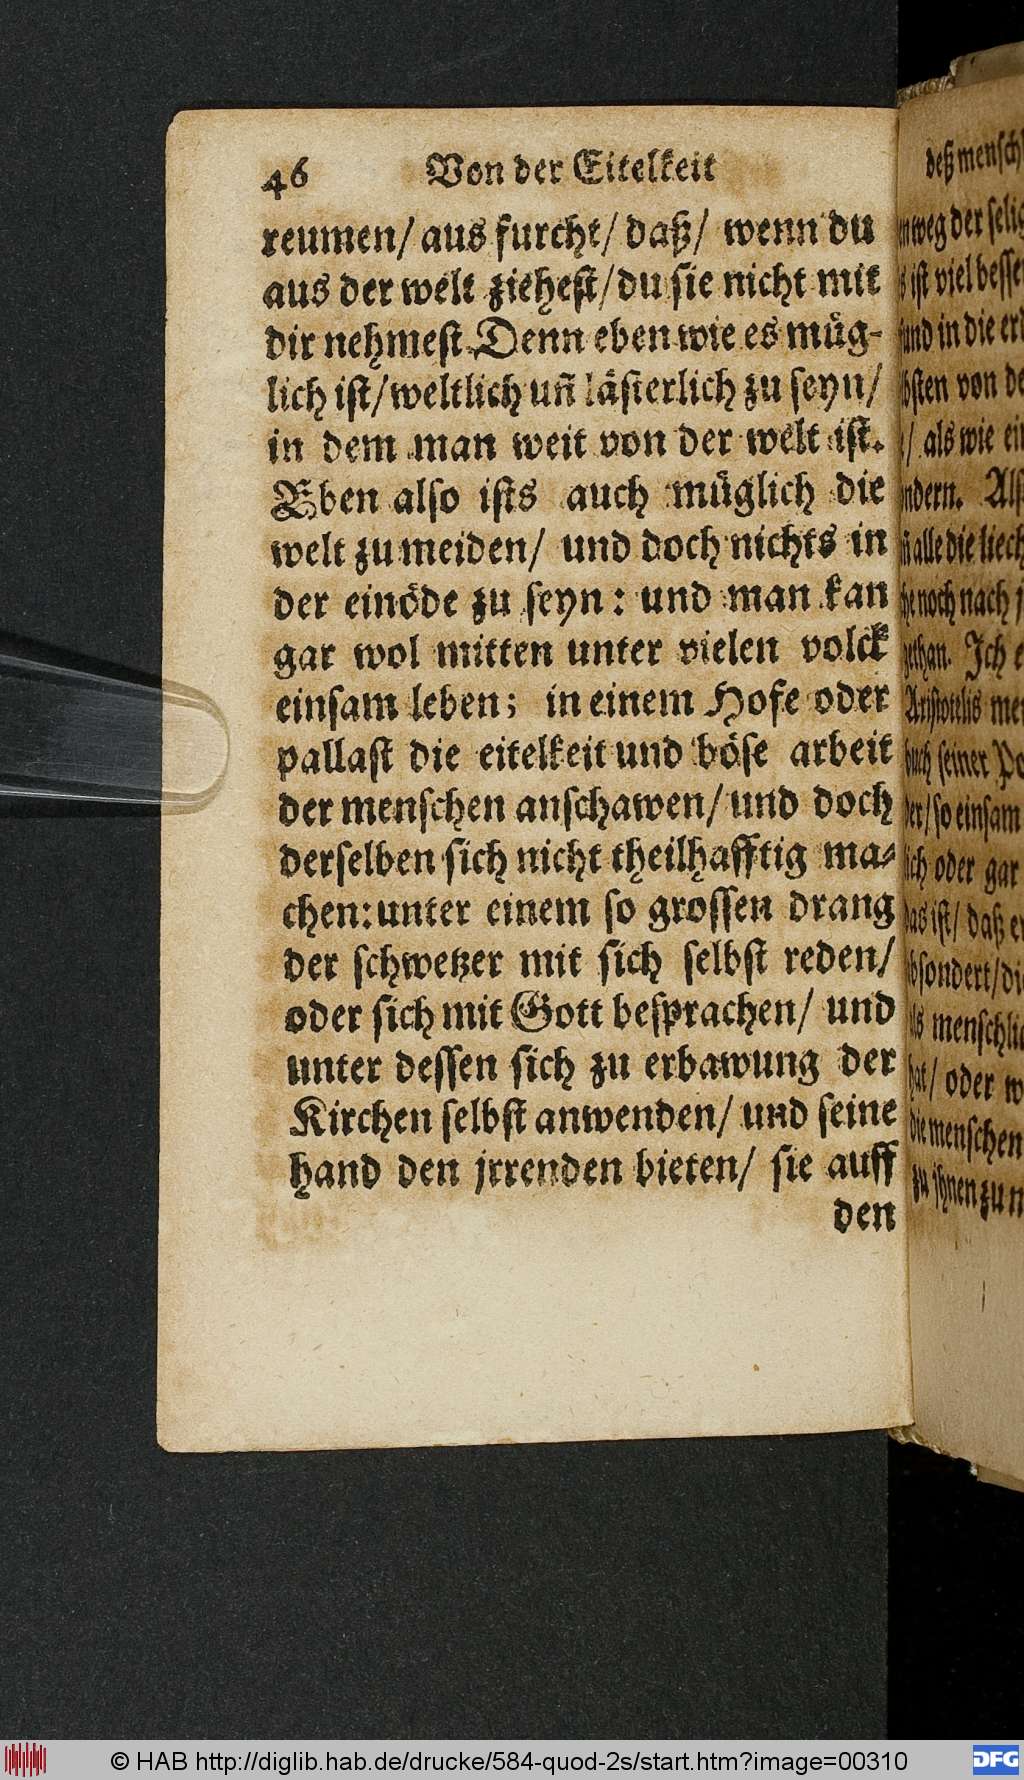 46 Von der Eitelkeit
reumen/ aus furcht/ daß/ wenn du
aus der welt ziehest/ du sie nicht mit
dir nehmest. Denn eben wie es müg-
lich ist/ weltlich uñ lästerlich zu seyn/
in dem man weit von der welt ist.
Eben also ists auch müglich die
welt zu meiden/ und doch nichts in
der einöde zu seyn: und man kan
gar wol mitten unter vielen volck
einsam leben; in einem Hofe oder
pallast die eitelkeit und böse arbeit
der menschen anschawen/ und doch
derselben sich nicht theilhafftig ma-
chen: unter einem so grossen drang
der schwetzer mit sich selbst reden/
oder sich mit Gott besprachen/ und
unter dessen sich zu erbawung der
Kirchen selbst anwenden/ und seine
hand den jrrenden bieten/ sie auff
den
deß mensch
weg der selig
ist viel besse
und in die er
sten von de
/ als wie ein
ndern. Als
alle die liech
noch nach j
gethan. Ich e
Aristotelis me
buch seiner Po
der/ so einsam
lich oder gar
das ist/ daß er
bsondert/ di
als menschli
hat/ oder w
die menschen
zu ihnen zu n
© HAB http://diglib.hab.de/drucke/584-quod-2s/start.htm?image=00310
DFG